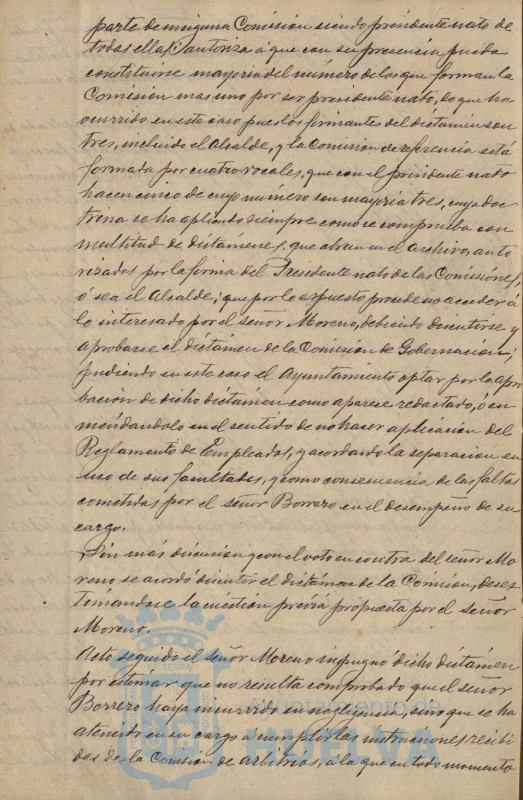 parte de ninguna Comisión siendo presidente nato de
todas ellas; autoriza á que con su presencia pueda
constituirse mayoria del número de los que forman la
Comisión mas uno por ser presidente nato, lo que ha
ocurrido en este caso pues los firmantes del dictamen son
tres, incluido el Alcalde, y la Comisión de referencia está
formada por cuatro vocales, que con el presidente nato
hacen cinco de cuyo número son mayoria tres, cuya doc
trina se ha aplicado siempre como se comprueba con
multitud de dictámenes, que obran en el archivo, auto
rizados por la firma del Presidente nato de las Comisiónes,
ó sea el Alcalde; que por lo expuesto procede no acceder á
lo interesado por el señor Moreno, debiendo discutirse y
aprobarse el dictámen de la Comisión de Gobernación;
pudiendo en este caso el Ayuntamiento optar por la apro
bación de dicho dictámen como aparece redactado, ó en
mendandolo en el sentido de no hacer aplicación del
Reglamento de Empleados, y acordando la separación en
uso de sus facultades, y como consecuencia de las faltas
cometidas por el señor Borrero en el desempeño de su
cargo.
Sin más discusion y con el voto en contra del señor Mo
reno se acordó discutir el dictámen de la Comisión, deses
timandose la cuestión prévia propuesta por el señor
Moreno.
Acto seguido el señor Moreno impugnó dicho dictámen
por estimar que no resulta comprobado que el señor
Borrero haya incurrido en negligencia, sino que se ha
atenido en su cargo á cumplir las instrucciones recibi
das de la Comisión de Arbitrios, á la que en todo momento
HUELVA